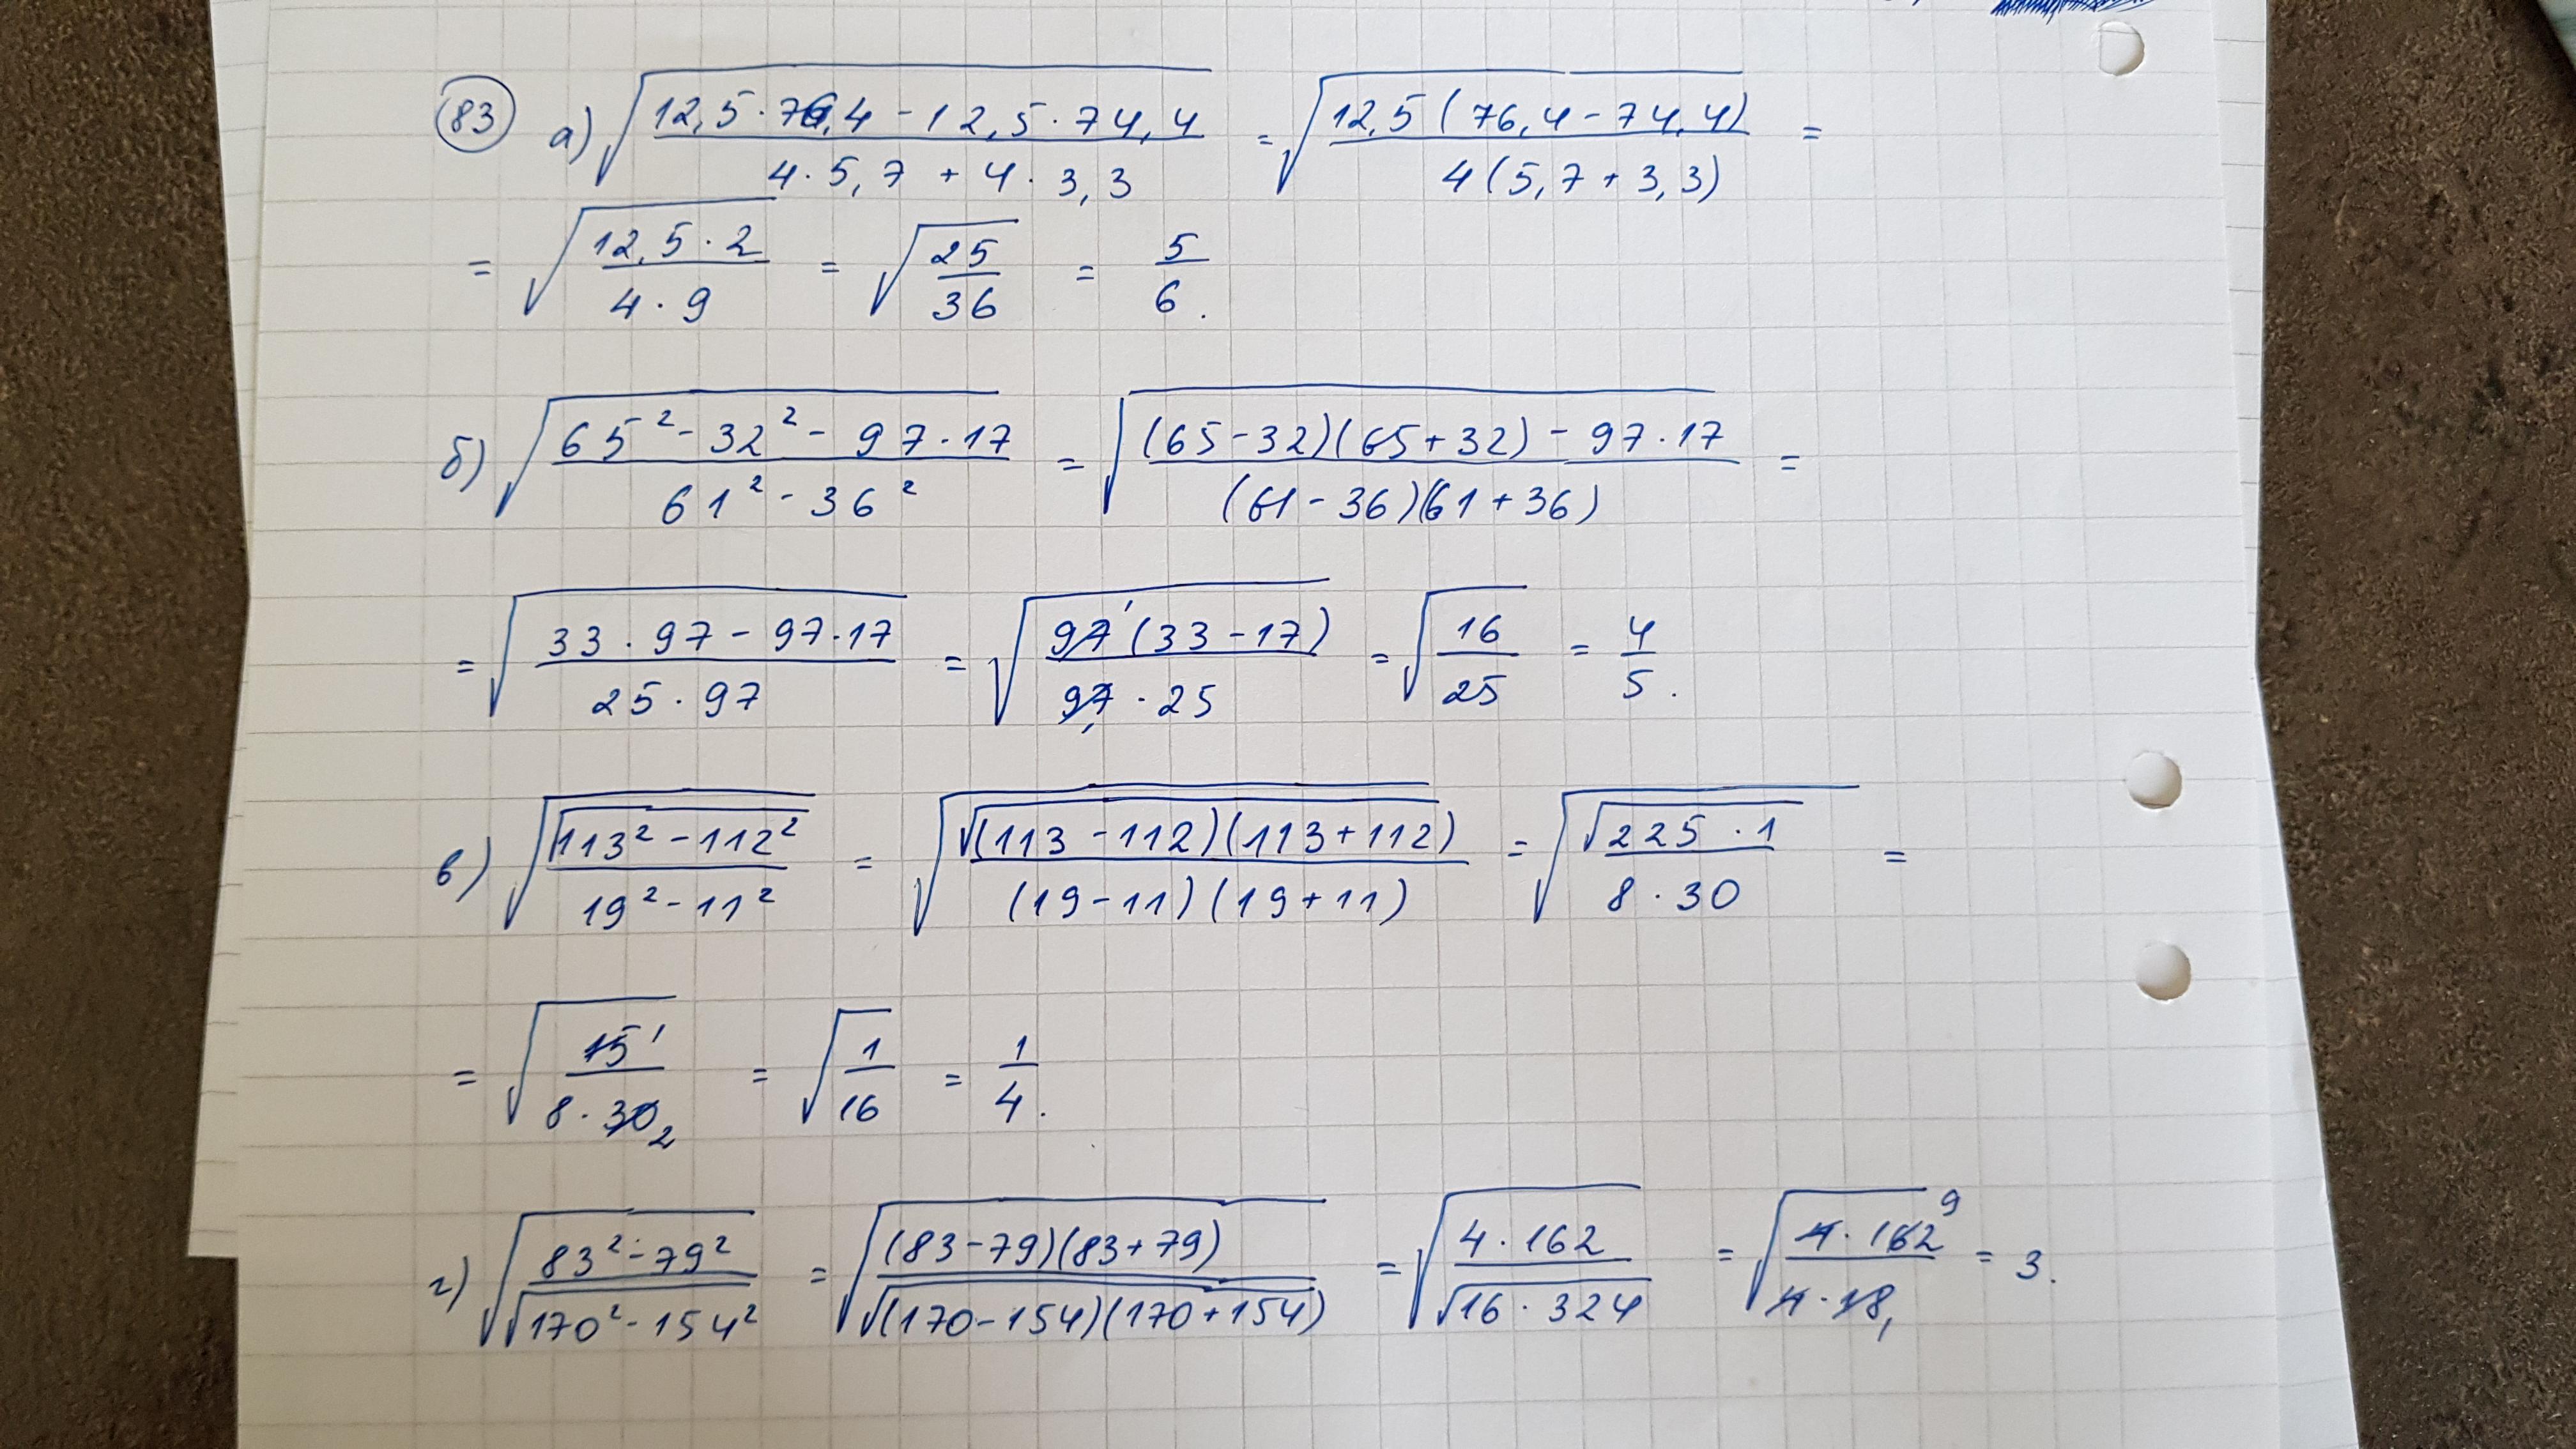 83 а) √((12,5 · 76,4 - 12,5 · 74,4)/(4 · 5,7 + 4 · 3,3)) = √((12,5 (76,4 - 74,4))/(4 (5,7 + 3,3))) =
= √((12,5 · 2)/(4 · 9)) = √(25/36) = 5/6.
б) √((65² - 32² - 97 · 17)/(61² - 36²)) = √(((65 - 32)(65 + 32) - 97 · 17)/((61 - 36)(61 + 36))) =
= √((33 · 97 - 97 · 17)/(25 · 97)) = √((97¹ (33 - 17))/(97₁ · 25)) = √(16/25) = 4/5.
в) √(√(113² - 112²)/(19² - 11²)) = √(√((113 - 112)(113 + 112))/((19 - 11)(19 + 11))) = √(√(225 · 1)/(8 · 30)) =
= √(15¹/(8 · 30₂)) = √(1/16) = 1/4.
г) √((83² - 79²)/√(170² - 154²)) = √(((83 - 79)(83 + 79))/√((170 - 154)(170 + 154))) = √((4 · 162)/√(16 · 324)) = √((4 · 162⁹)/(4 · 18₁)) = 3.